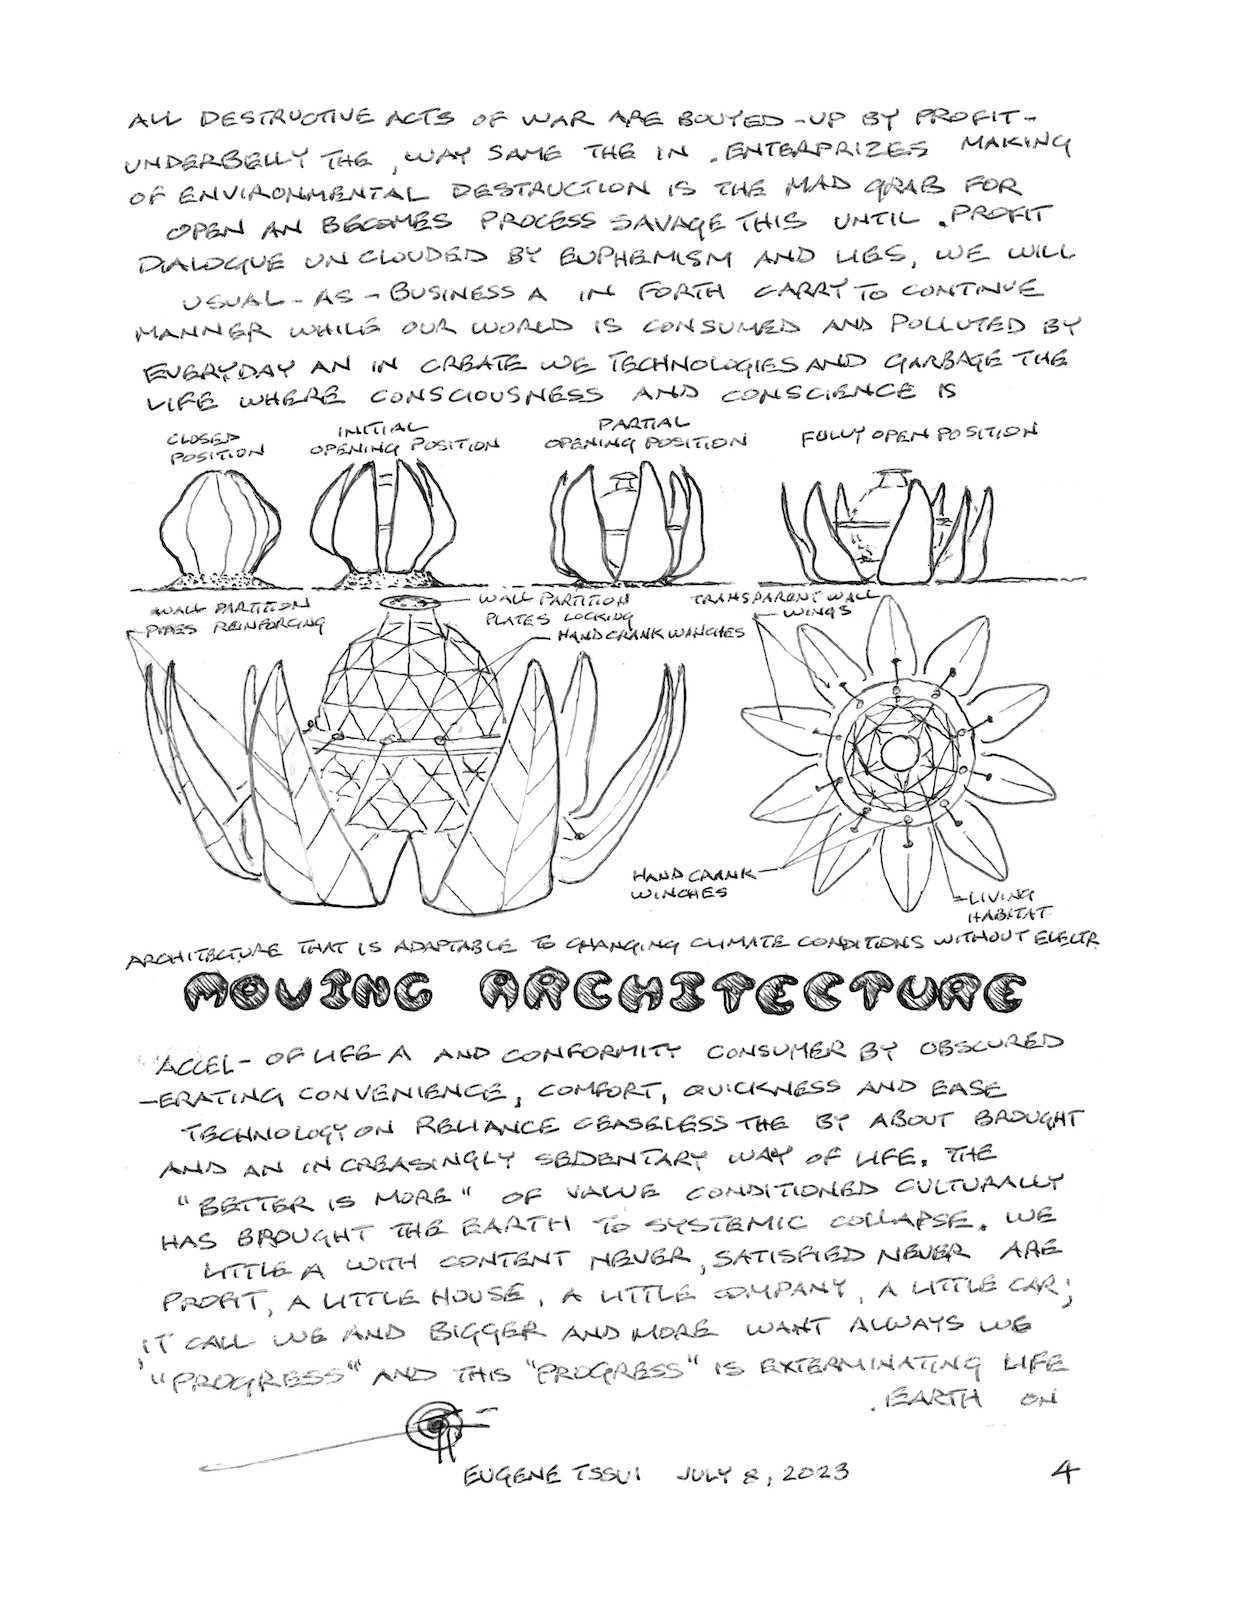 ALL DESTRUCTIVE ACTS OF WAR ARE BOUYED-UP BY PROFIT-
UNDERBELLY THE ,WAY SAME THE IN .ENTERPRIZES MAKING
OF ENVIRONMENTAL DESTRUCTION IS THE MAD GRAB FOR
OPEN AN BECOMES PROCESS SAVAGE THIS UNTIL .PROFIT
DIALOGUE UNCLOUDED BY EUPHEMISM AND LIES, WE WILL
USUAL-AS-BUSINESS A IN FORTH CARRY TO CONTINUE
MANNER WHILE OUR WORLD IS CONSUMED AND POLLUTED BY
EVERYDAY AN IN CREATE WE TECHNOLOGIES AND GARBAGE THE
LIFE WHERE CONSCIOUSNESS AND CONSCIENCE IS
CLOSED
POSITION
INITIAL
OPENING POSITION
PARTIAL
OPENING POSITION
FULLY OPEN POSITION
WALL PARTITION
PIPES REINFORCING
WALL PARTITION
PLATES LOCKING
HAND CRANK WINCHES
TRANSPARENT WALL
WINGS
HAND CRANK
WINCHES
LIVING
HABITAT
ARCHITECTURE THAT IS ADAPTABLE TO CHANGING CLIMATE CONDITIONS WITHOUT ELECTR
MOVING ARCHITECTURE
ACCEL- OF LIFE A AND CONFORMITY CONSUMER BY OBSCURED
-ERATING CONVENIENCE, COMFORT, QUICKNESS AND EASE
TECHNOLOGY ON RELIANCE CEASELESS THE BY ABOUT BROUGHT
AND AN INCREASINGLY SEDENTARY WAY OF LIFE. THE
"BETTER IS MORE" OF VALUE CONDITIONED CULTURALLY
HAS BROUGHT THE EARTH TO SYSTEMIC COLLAPSE. WE
LITTLE A WITH CONTENT NEVER ,SATISFIED NEVER ARE
PROFIT, A LITTLE HOUSE, A LITTLE COMPANY, A LITTLE CAR;
IT CALL WE AND BIGGER AND MORE WANT ALWAYS WE
"PROGRESS" AND THIS "PROGRESS" IS EXTERMINATING LIFE
.EARTH ON
EUGENE TSSUI JULY 8, 2023
4